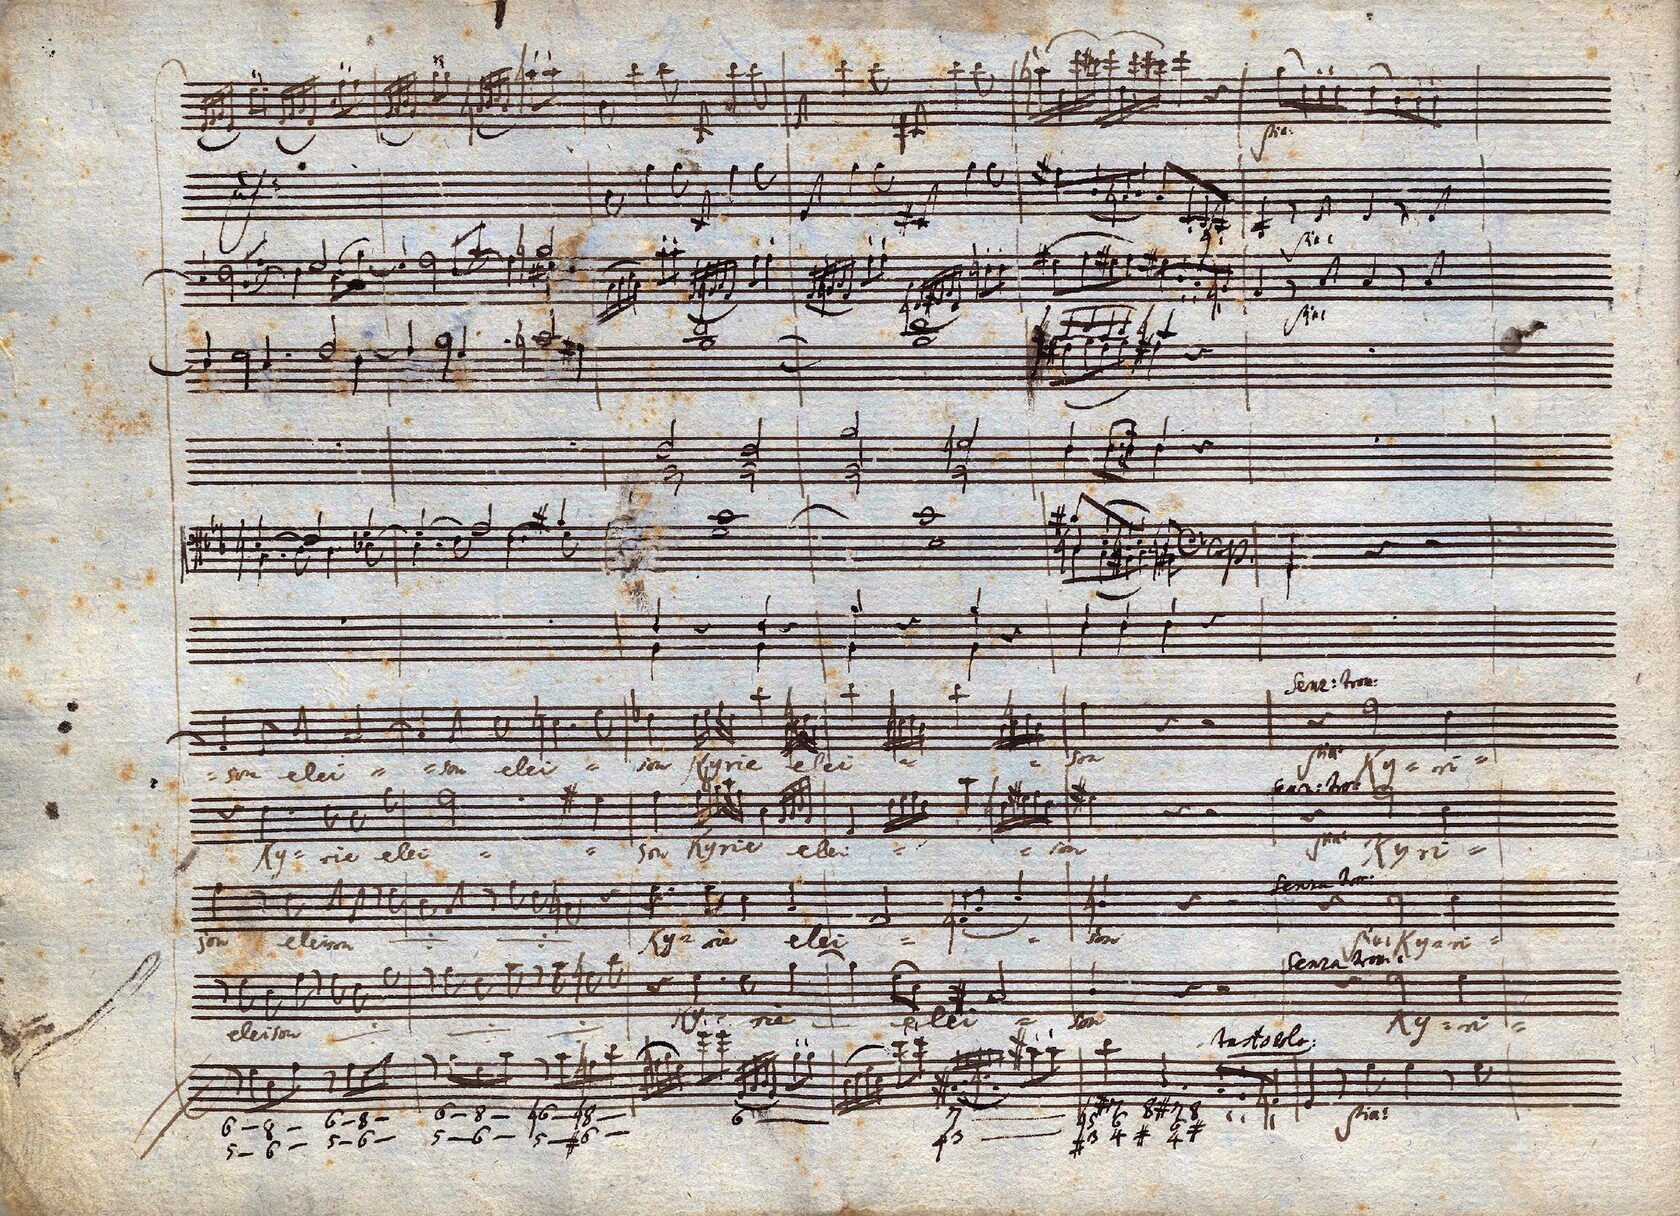 pia:
pia:
pia:
Senz: trom:
= son elei = = son elei = son Kyrie elei = = son pia: Ky = ri =
senz: trom:
Ky = rie elei = = son Kyrie elei = = son pia: Kyri =
Senza trom:
son eleison Ky = rie elei = = son pia: Ky = ri =
Senza trom:
eleison Ky = rie elei = son Ky = ri =
tasto solo:
6 – 8 – 6 – 8 – 6 – 8 –
5 – 6 – 5 – 6 – 5 – 6 –
6
pia: